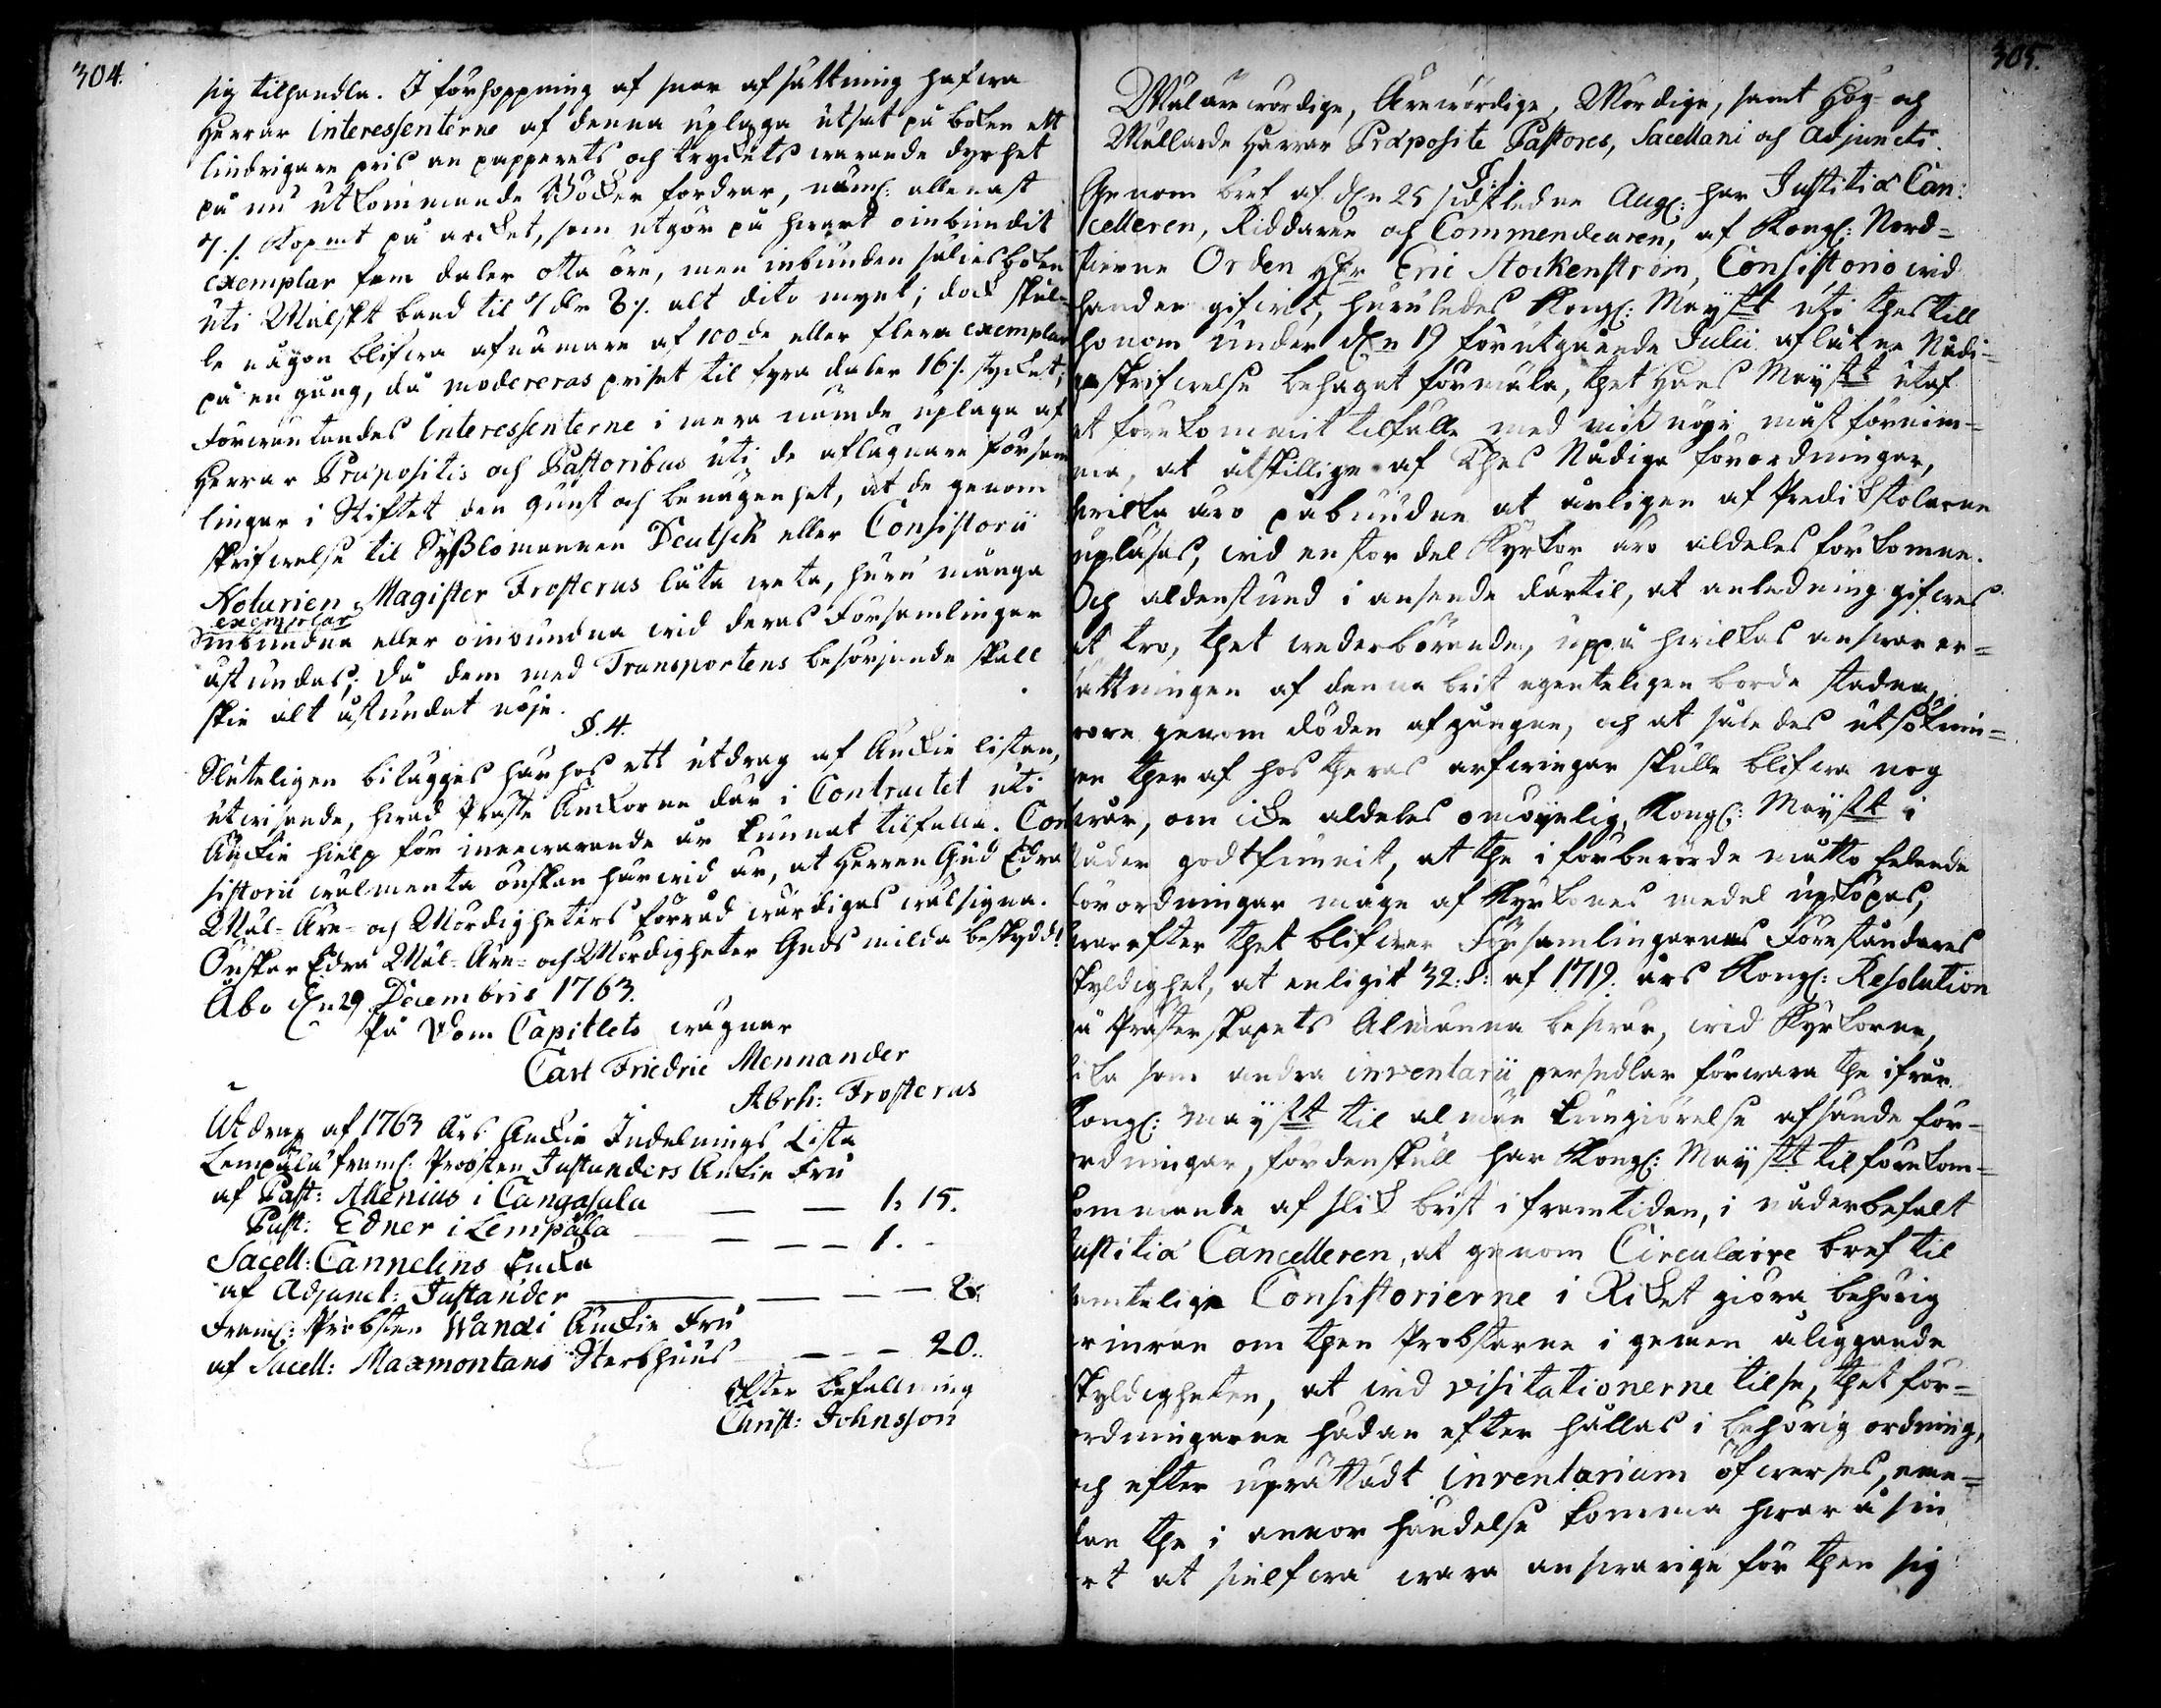 304.
sig tilhandla. I förhoppning af snar afsättning hafwa
Herrar Interessenterne af denna uplaga utsat på boken ett
lindrigare pris än papperets och tryckets warande dyrhet
på nu utkommande Böcker fordrar, näml: allenast
7./. Kopmt på arcket, som utgör på hwart oinbundit
exemplar fem daler otta öre, men inbunden
uti Wälskt band til 7 dlr 8/. alt dito mynt; dock skul-
le någon blifwa afnämare af 100de eller flera exemplar
på en gång, då modereras priset til fyra daler 16/. stycket;
Förwäntandes Interessenterne i mera nämde uplaga af
Herrar Præpositis och Pastoribus uti de aflägnare försam
lingar i Stiftet den gunst och benägenhet, at de genom
skrifwelse til Sysslomannen Deutsch eller Consistorii
Notarien Magister Frosterus låta weta, huru många
exemplar
inbundna eller oinbundna wid deras Församlingar
åstundas; då dem med Transportens besörjande skall
skie alt åstundat nöje.
§. 4.
Sluteligen bilägges härhos ett utdrag af Änckie listan,
utwisande, hwad Präste Änckorne där i Contractet uti
Änckie hielp för innewarande år kunnat tilfalla. Con
sistorii wälmenta önskan härwid är, at Herren Gud Edra
Wäl- Äre- och Wördigheters förråd wärdiges wälsigna.
Önskar Edra Wäl- Äre- och Wördigheter Guds milda beskydd!
Åbo d. 29 Decembris 1763.
På Dom Capitlets wägnar
Carl Friedric Mennander
Abrh: Frosterus
Utdrag af 1763 Års Änckie Indelnings Lista
Lempälä framl: Probsten Justanders Änkie Fru
af Past: Allenius i Cangasala — — 1: 15.
Past: Edner i Lempälä — — — 1. -
Sacell: Cannelins Encka
af Adjunct: Justander — — — — 2.
Framl: Probsten Wanæi Änckie Fru
af Sacell: Maxmontans Sterbhuus — — — 20.
Efter Befallning
Christ: Johnsson
305.
Wäl äre wördige, Ärewördige, Wördige, samt Hög- och
Wällärde Herrar Præposite Pastores, Sacellani och Adjuncti.
§. 1.
Genom bref af d. 25 sidstledne Aug: har Justitiæ Can:
celleren, Riddaren och Commendeuren, af Kongl: Nord-
stierne Orden Herr Eric Stockenström, Consistorio wid
handen gifwit, huruledes Kongl: Mayst uti thes till
honom under d. 19 förutgående Julii aflåtne Nådi-
ga skrifwelse behagat förmäla, thet Hans Mayst utaf
et förekommit tilfälle med missnöje måst förnim-
ma, at åtskillige af Thes Nådiga förordningar,
hwilka äro påbudne at årligen af Predikstolarne
upläsas, wid en stor del Kyrkor äro aldeles forkomne.
Och aldenstund i anseende därtil, at anledning gifwes
at tro, thet wederbörande, uppå hwilkas answar er-
sättningen af denna brist egenteligen borde stadna,
wore genom döden afgångne, och at således utsöknin-
gen theraf hos theras arfwingar skulle blifwa nog
swår, om icke aldeles omöyelig, Kongl: Mayst i
Nåder godtfunnit, at the i förberörde måtto felande
förordningar måge af Kyrkones medel upköpas,
hwarefter thet blifwer Församlingarnes Föreståndares
skyldighet, at enligit 32: §: af 1719. års Kongl: Resolution
på Prästerskapets Almänna beswär, wid Kyrkorne,
lika som andra inventarii persedlar förwara the ifrån
Kongl: Mayst til almän kungiörelse afsände för-
ordningar, fördenskull har Kongl: Mayst til förekom-
kommande af slik brist i framtiden, i nåder befalt
Justitiæ Cancelleren, at genom Circulaire bref til
samtelige Consistorierne i Riket giöra behörig
erinran om then Probstarne i gemen åliggande
skyldigheten, at wid visitationerne tilse, thet för-
ordningarne hädan efter hållas i behörig ordning,
och efter uprättadt inventarium öfwerses, eme-
dan the i annor händelse komma hwar å sin
ort at sielfwa wara answarige för then sig